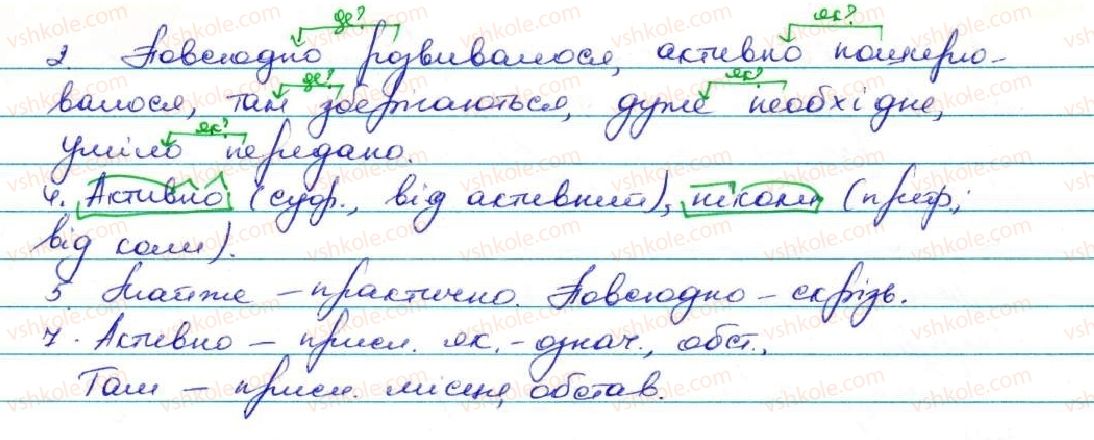 де? як?
2. Повсюдно розвивалося, активно поширю-
де? як?
валося, там зберігаються, дуже необхідне,
як?
уміло передано.
4. Активно (суф., від активний), ніколи (преф.,
від коли).
5. Майже – практично. Повсюдно – скрізь.
7. Активно – присл. як. – означ., обст.,
Там – присл. місця, обстав.